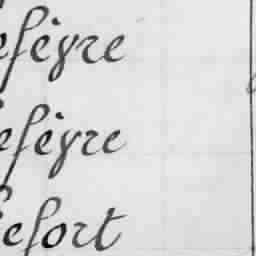 efèvre
efèvre
efort